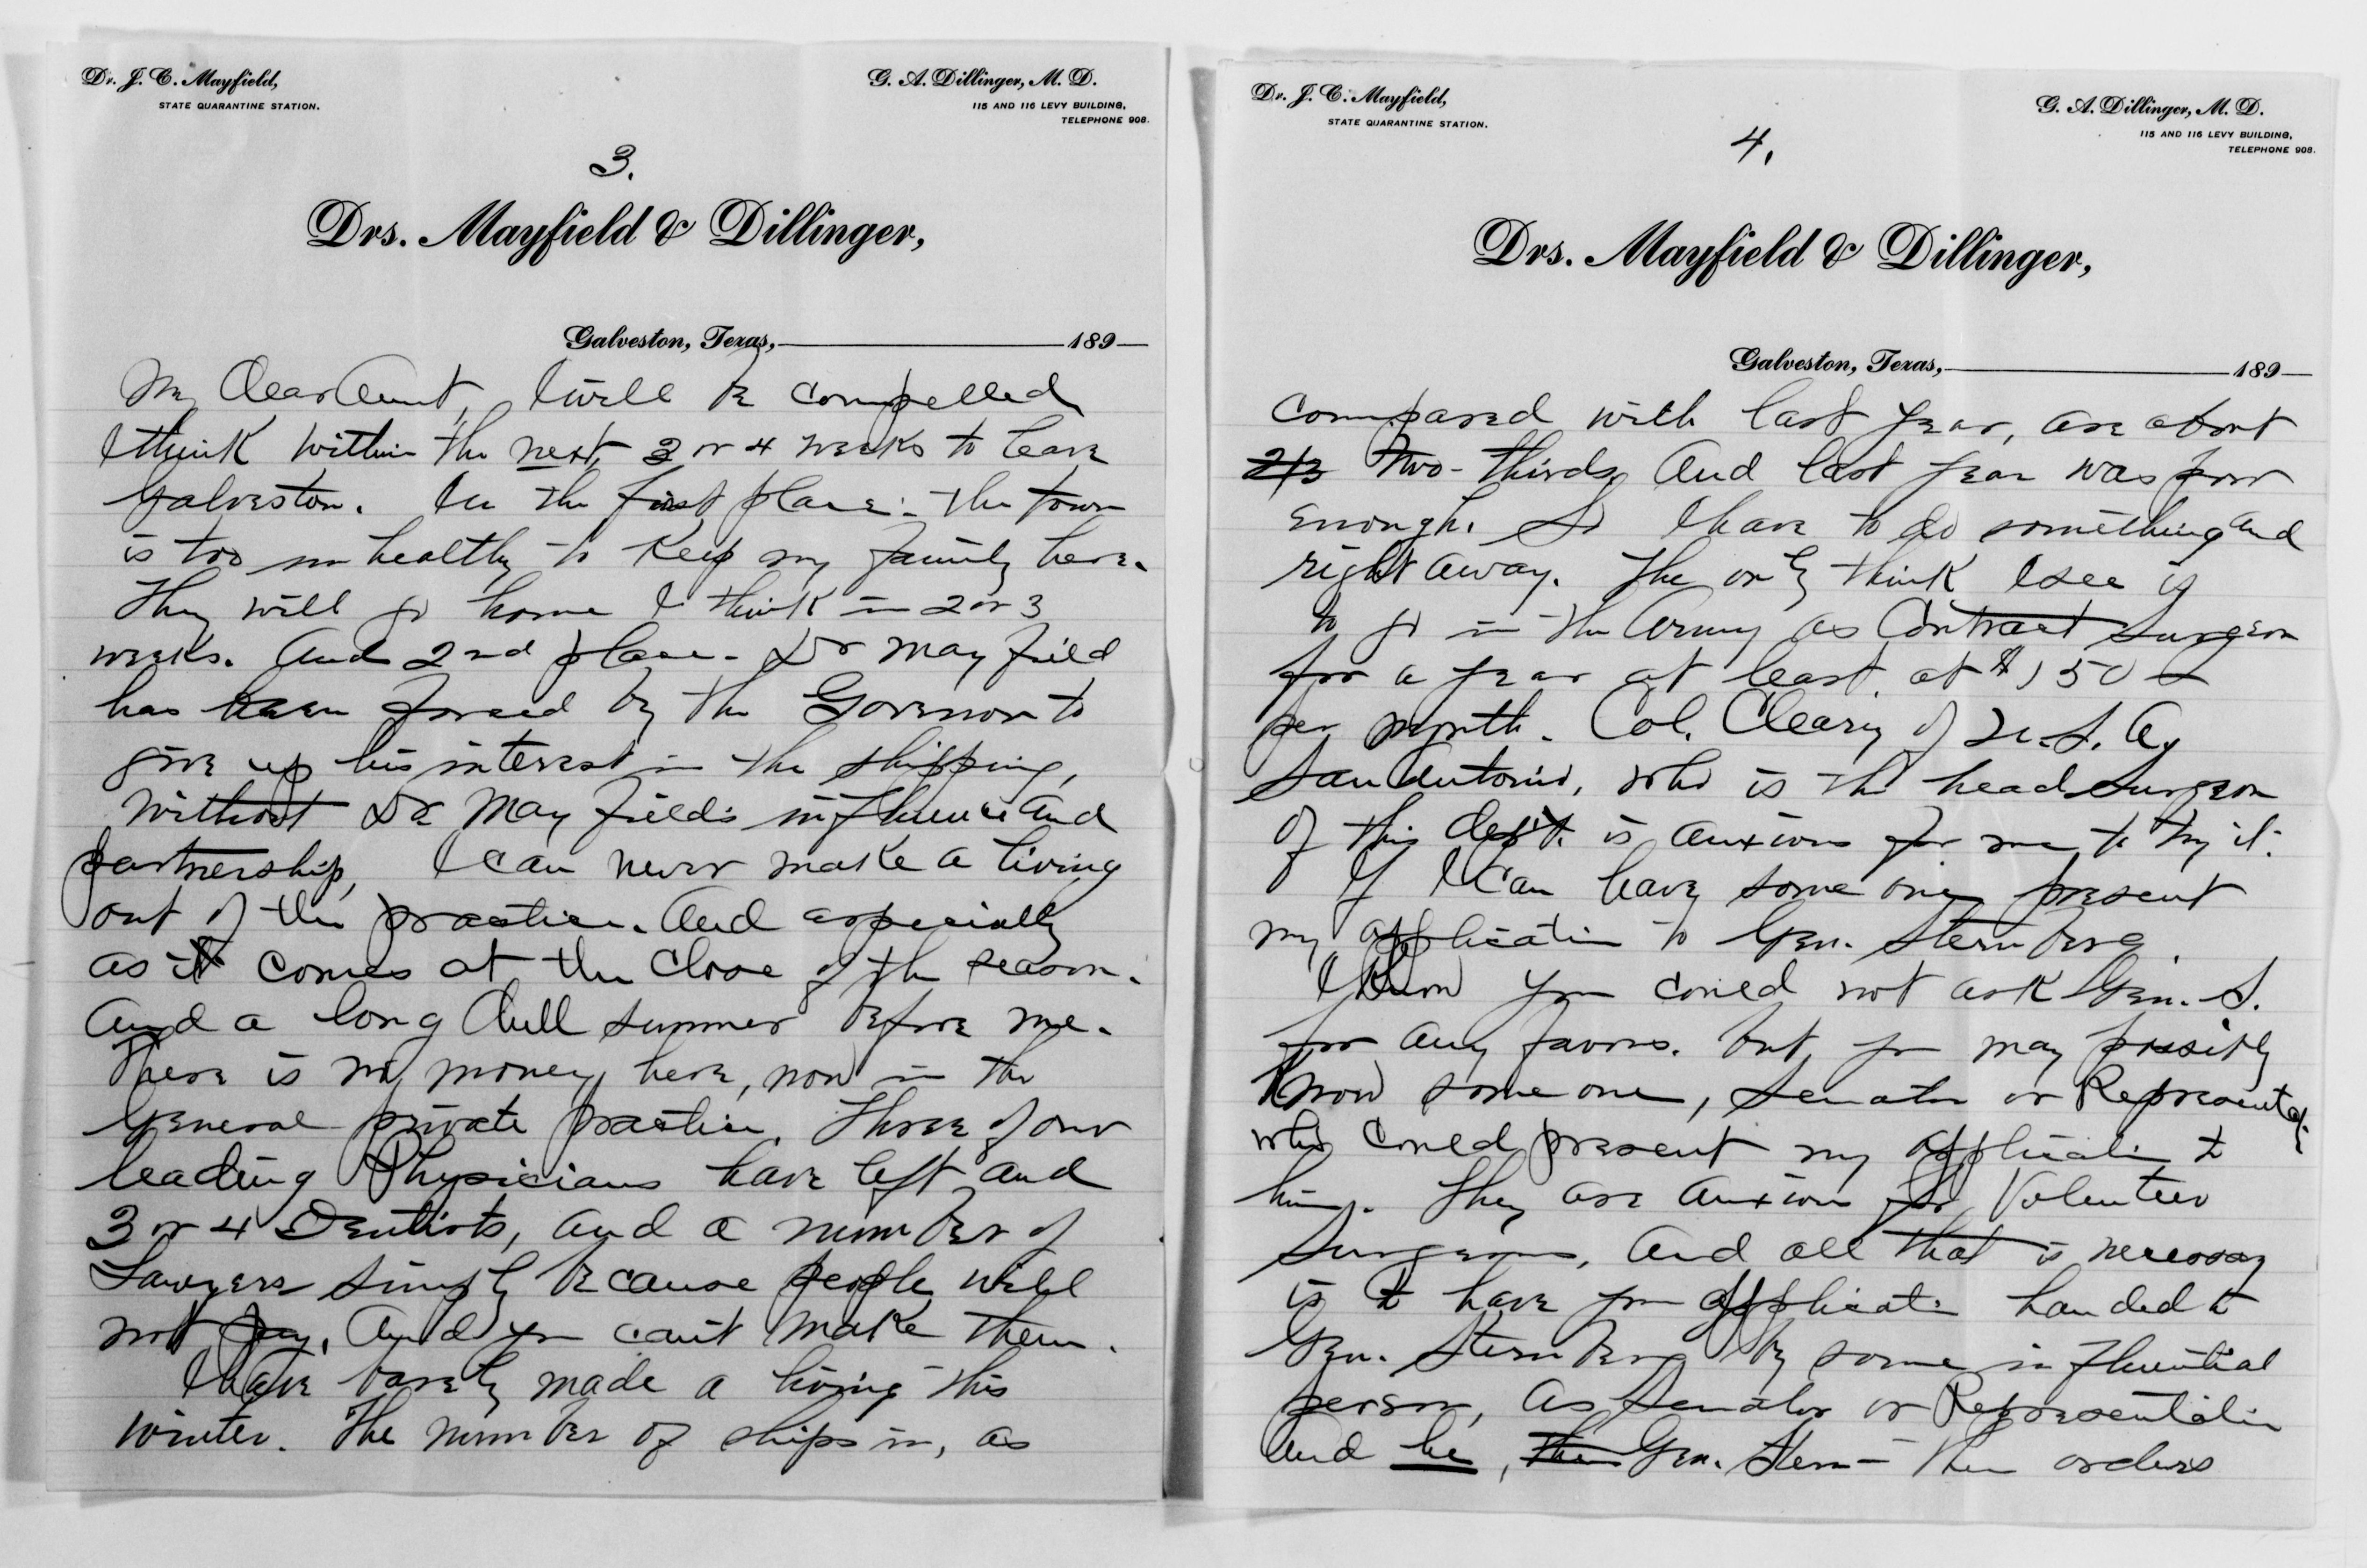 Dr. J. C. Mayfield,
STATE QUARANTINE STATION.
G. A. Dillinger, M. D.
115 AND 116 LEVY BUILDING,
TELEPHONE 908.
3.
Drs. Mayfield & Dillinger,
Galveston, Texas, 189
My Dear Aunt, I will be compelled
I think within the next 3 or 4 weeks to leave
Galveston. In the first place: the town
is too unhealthy to keep my family here.
They will go home I think in 2 or 3
weeks. And 2nd place - Dr Mayfield
has been forced by the Governor to
give up his interest in the shipping,
Without Dr Mayfield's influence and
partnership, I can never make a living
out of the practice. And especially
as it comes at the close of the season.
And a long dull summer before me.
There is no money here, now in the
General private practice. Three of our
leading Physicians have left and
3 or 4 Dentists, and a number of
Lawyers simply because people will
not pay. And you can't make them.
I have barely made a living this
winter. The number of ships in, as
Dr. J. C. Mayfield,
STATE QUARANTINE STATION.
G. A. Dillinger, M. D.
115 AND 116 LEVY BUILDING,
TELEPHONE 908.
4.
Drs. Mayfield & Dillinger,
Galveston, Texas, 189
compared with last year, are about
2/3 Two-thirds, And last year was poor
enough. So I have to do something and
right away. The only think I see is
to go in the Army as Contract Surgeon
for a year at least at $150
per month. Col. Cleary of U.S. Ay
San Antonio, who is the head Surgeon
of this dept. is anxious for me to try it.
If I can have some one present
my application to Gen. Sternberg.
I know you could not ask Gen. S.
for any favors. but, you may possibly
know some one, Senator or Representat.
who could present my application to
him. They are anxious for Volunteer
Surgeons, And all that is necessary
is to have your application handed to
Gen. Sternberg by some influential
person, as Senator or Representative
And he, then Gen. Stern- then orders